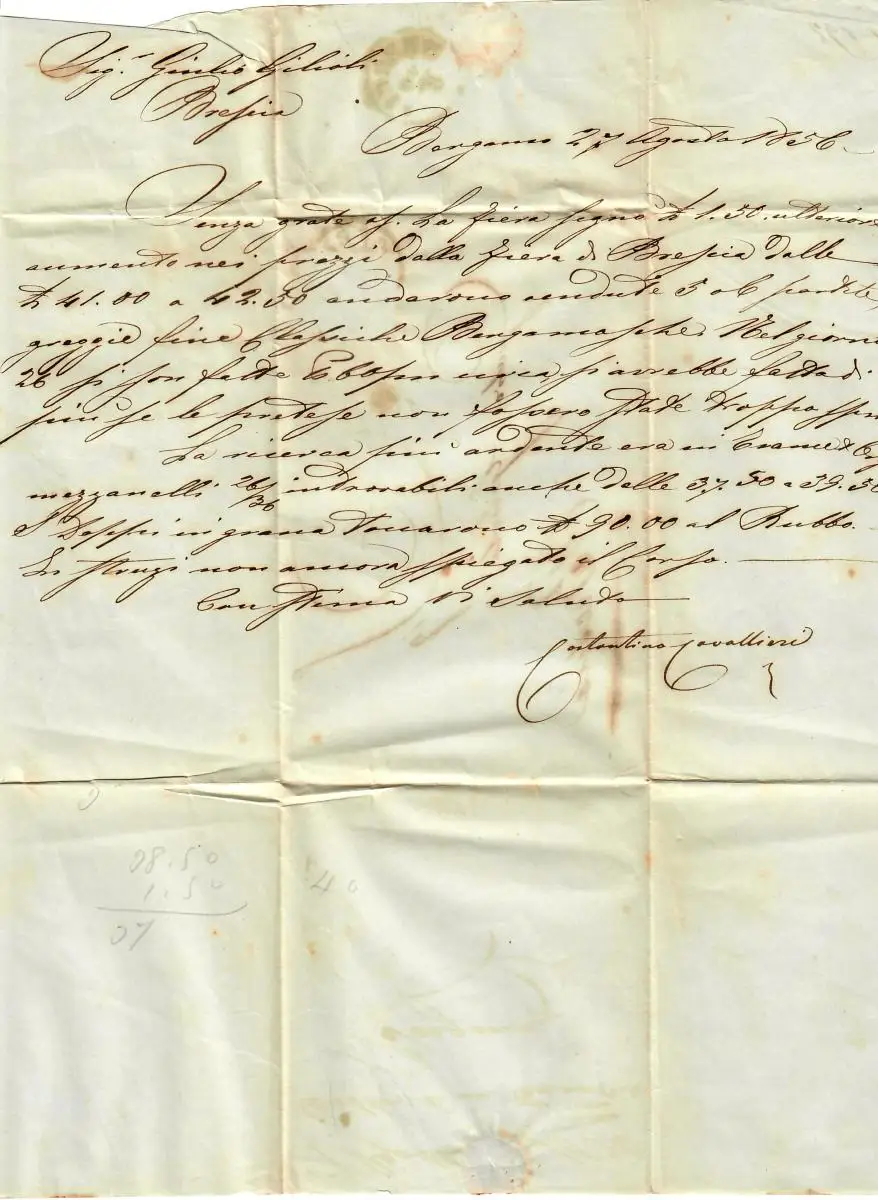 Sig.r Giulio Gilioli
Brescia
Bergamo 27 Agosto 1856
Senza grate af. La fiera segnò £ 1.50. ulteriore
aumento nei prezzi dalla fiera di Brescia dalle
£ 41.00 a 42.50 andarono vendute 5 o 6 partite
greggie fine Classiche Bergamasche. Nel giorno
26 si son fatte circa, si avrebbe fatto di
più se le pretese non fossero state troppo
La ricerca più ardente era in Trame &
mezzanelli 26/36 introvabili anche dalle 37.50 a 39.50
Doppi in grana toccarono £ 90.00 al Rubbo.
In strusi non ancora spiegato il Corso.
Con stima Vi Saluto
Costantino Cavallieri
08.50
1.50
07
40